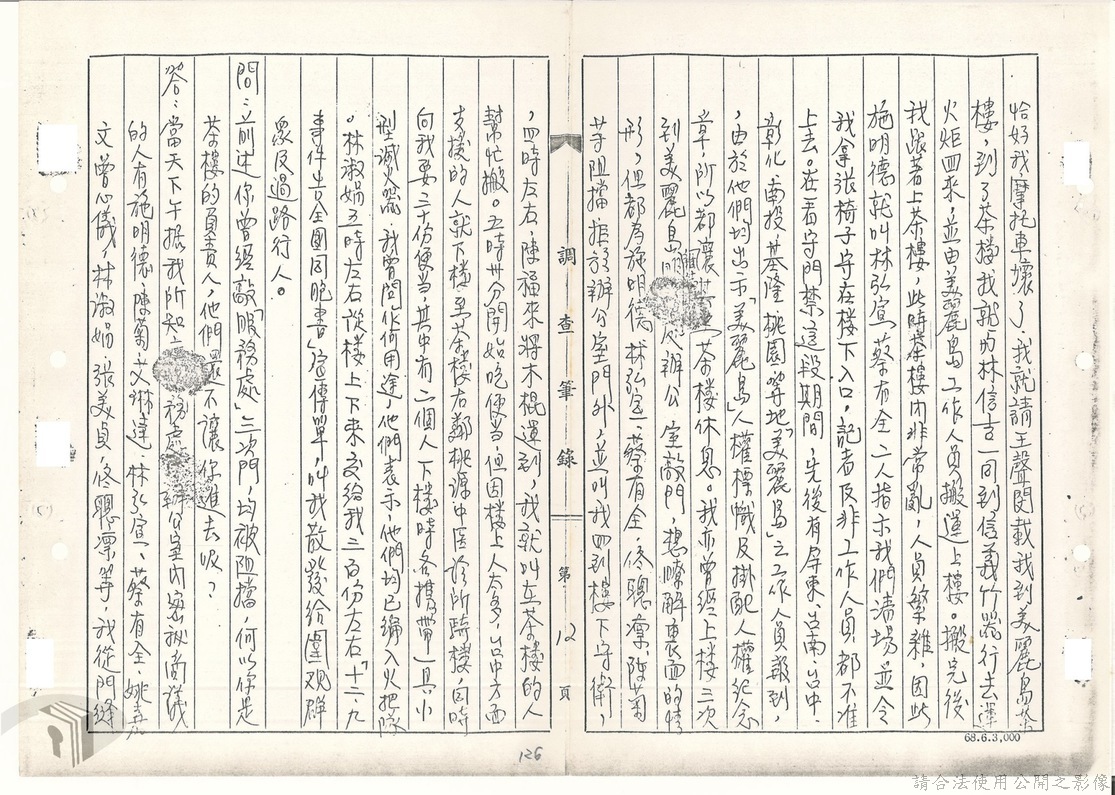 恰好我摩托車壞了,我就請王聲閔載我到美麗島茶
樓,到了茶樓我就與林信吉一同到信義竹器行去運
火炬回來,並由美麗島工作人員搬運上樓。搬完後
我跟著上茶樓,此時茶樓內非常亂,人員繁雜,因此
施明德就叫林弘宣、蔡有全二人指示我們清場並令
我拿張椅子守在樓下入口,記者及非工作人員都不准
上去。在看守門禁這段期間,先後有屏東、台南、台中、
彰化、南投、基隆、桃園等地「美麗島」之工作人員報到,
,由於他們均出示「美麗島」人權標幟及掛配人權紀念
章,所以都讓其 茶樓休息。我亦曾經上樓三次
到美麗島 辦公室敲門,想瞭解裏面的情
形,但都為施明德、林弘宣、蔡有全、佟聰凜、陳菊
等阻擋拒於辦公室門外,並叫我回到樓下守衛,
調查筆錄 第 12 頁
,四時左右,陳福來將木棍運到,我就叫在茶樓的人
幫忙搬。五時卅分開始吃便當,但因樓上人太多,台中方面
支援的人就下樓至茶樓右鄰桃源中医診所騎樓,同時
向我要二十份便當,其中有二個人下樓時各攜帶一具小
型滅火器,我曾問作何用途,他們表示他們均已編入火把隊
。林淑娟五時左右從樓上下來交給我三百份左右「十二、九
事件告全國同胞書」宣傳單,叫我散發給圍观群
眾及過路行人。
問:前述你曾經敲「服務處」三次門,均被阻擋,何以你是
茶樓的負責人,他們還不讓你進去呢?
答:當天下午据我所知, 務處辦公室內密拟商議
的人有施明德、陳菊、艾琳達、林弘宣、蔡有全、姚嘉
文、曾心儀、林淑娟、張美貞、佟聰凜等,我從門縫
68.6.3,000
126
請合法使用公開之影像